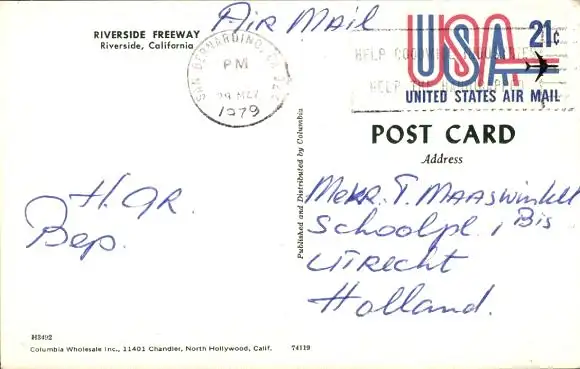 Air Mail
RIVERSIDE FREEWAY
Riverside, California
SAN BERNARDINO, CA
PM
1979
HELP GOODWILL INDUSTRIES
HELP THE HANDICAPPED
USA 21c
UNITED STATES AIR MAIL
POST CARD
Address
Published and Distributed by Columbia
H. GR.
Bep.
T. MAASwinkel
Schoolpl. 1 Bis
UTRecht
Holland.
H3492
Columbia Wholesale Inc., 11401 Chandler, North Hollywood, Calif. 74119